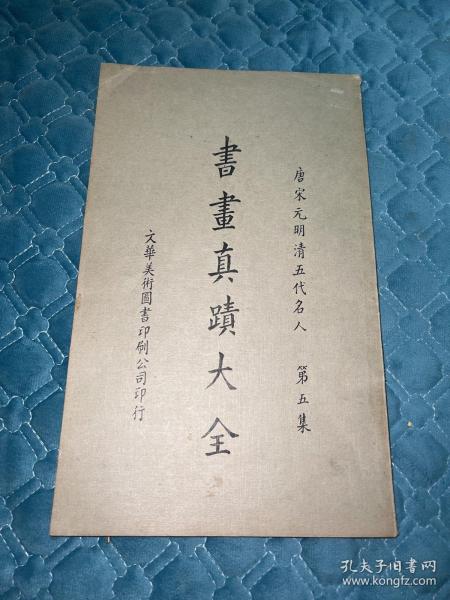 唐宋元明清五代名人 第五集
書畫真蹟大全
文華美術圖書印刷公司印行
孔夫子旧书网
www.kongfz.com